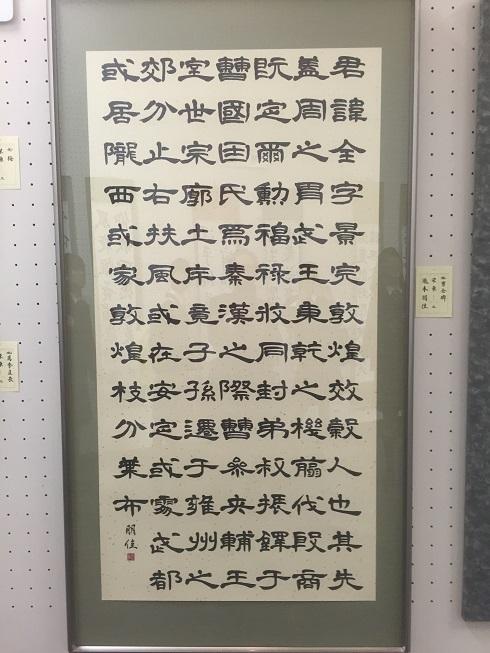 君諱全字景完敦煌效穀人也其先
蓋周之胄武王秉乾之機翦伐殷商
既定爾勳福祿攸同封弟叔振鐸于
曹國因氏焉秦漢之際曹參夾輔王
室世宗廓土斥竟子孫遷于雍州之
郊分止右扶風或在安定或處武都
或居隴西或家敦煌枝分葉布
朋佳